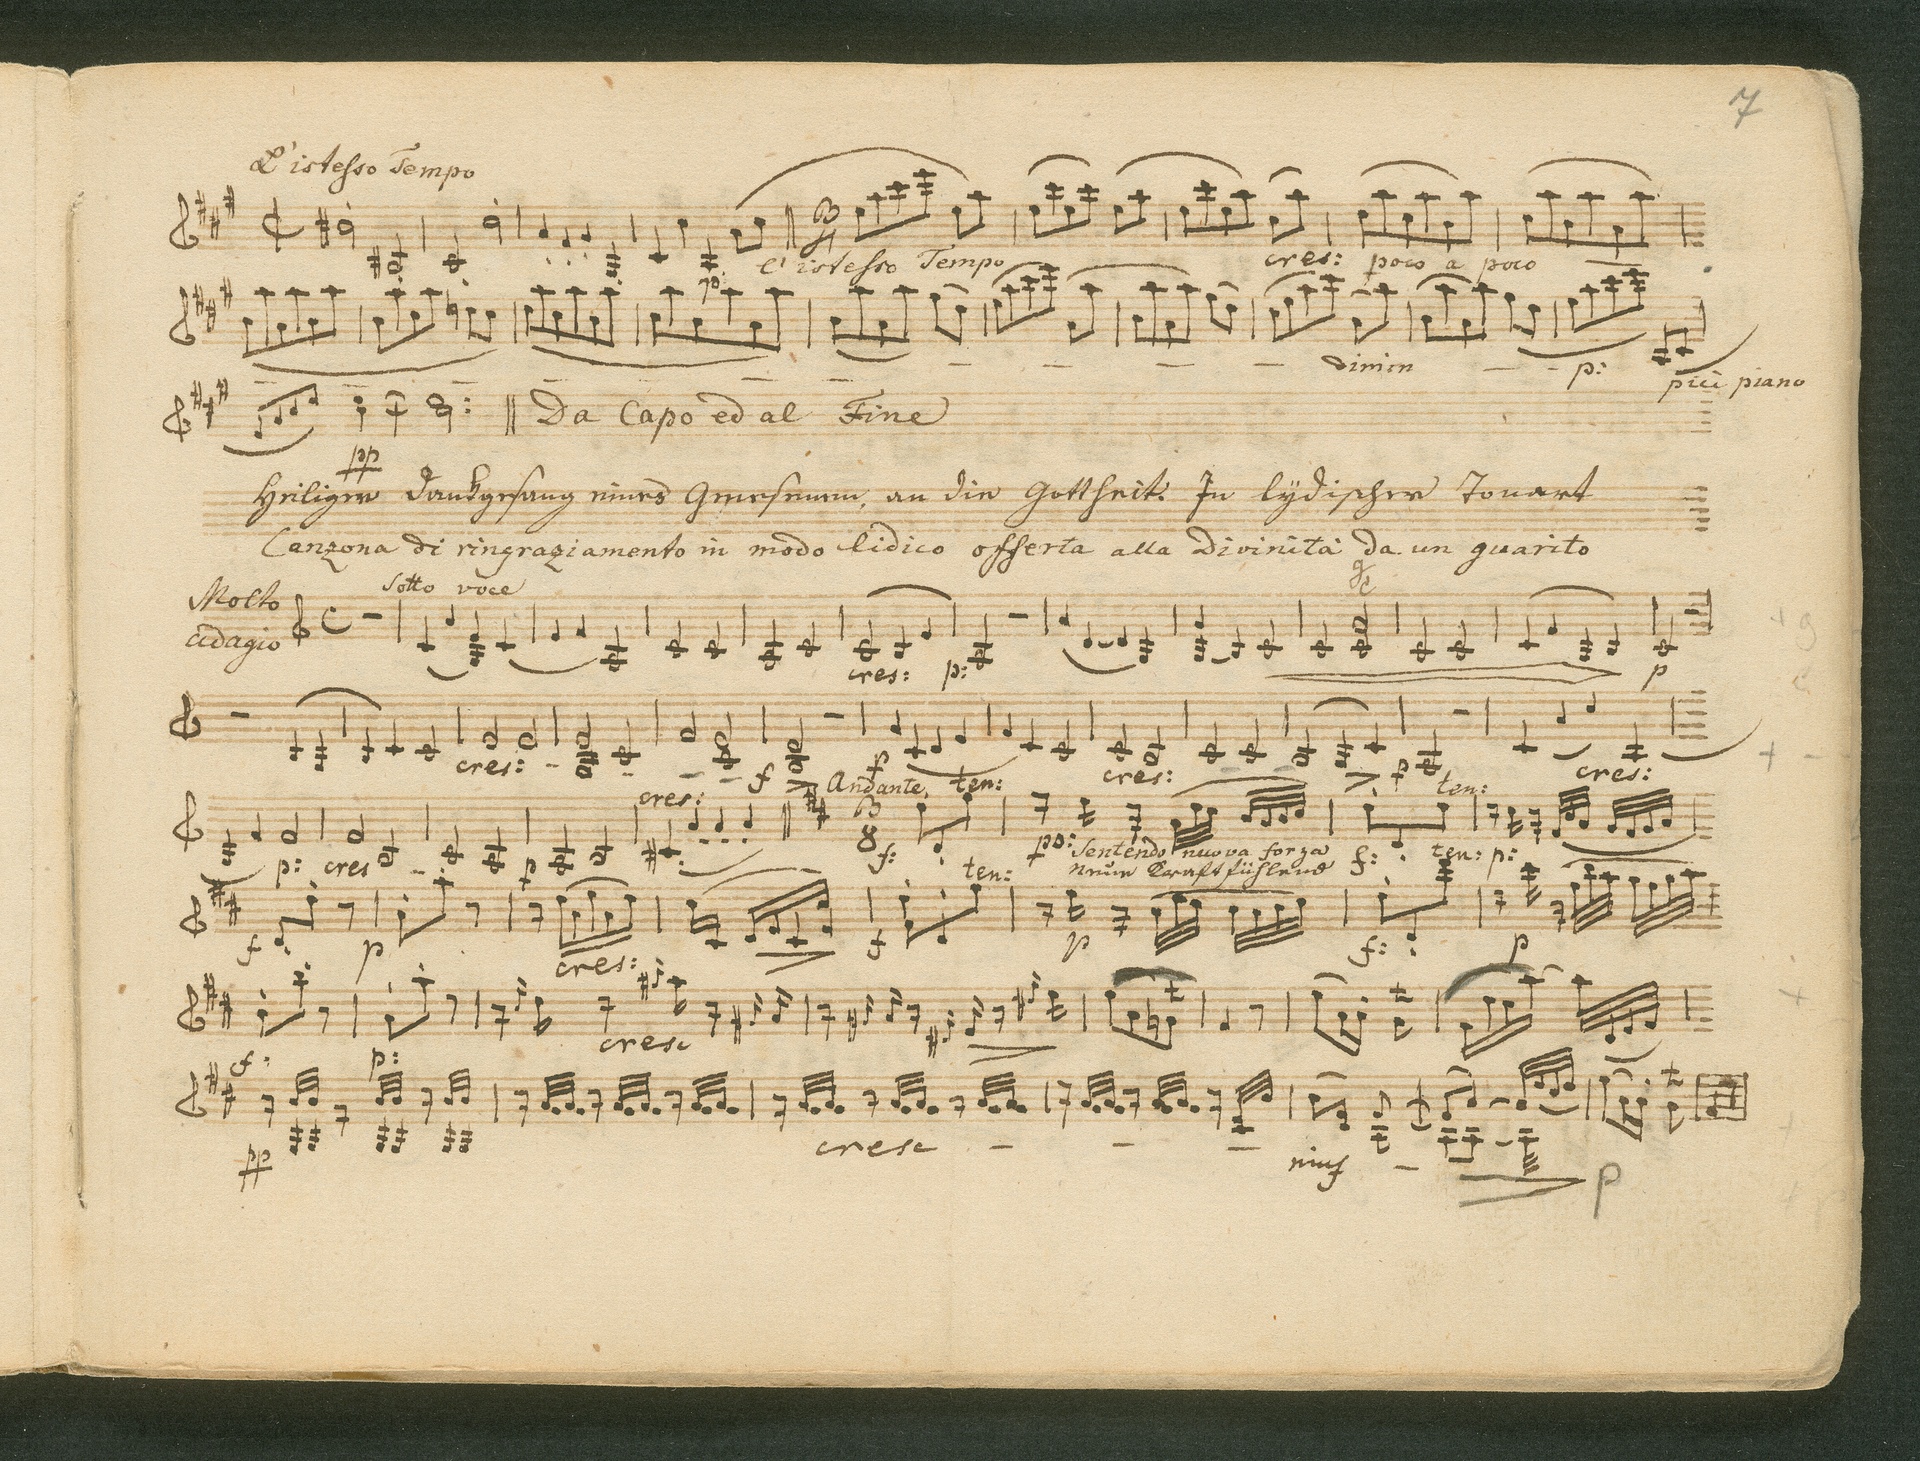 7
L'istesso Tempo
l'istesso Tempo
cres: poco a poco
dimin
p:
più piano
Da Capo ed al Fine
pp
Heiliger Dankgesang eines Genesenen, an die Gottheit. In lÿdischer Tonart
Canzona di ringraziamento in modo lidico offerta alla Divinità da un guarito
Molto
adagio
sotto voce
cres: p:
p
cres: f
p
cres:
p
cres:
cres: Andante ten: ten:
p: cres p
f: pp: Sentendo nuova forza f: p:
neue Kraft fühlend
ten: ten:
f p cres: f p f: p
cresc
f: p:
pp cresc
rinf
p